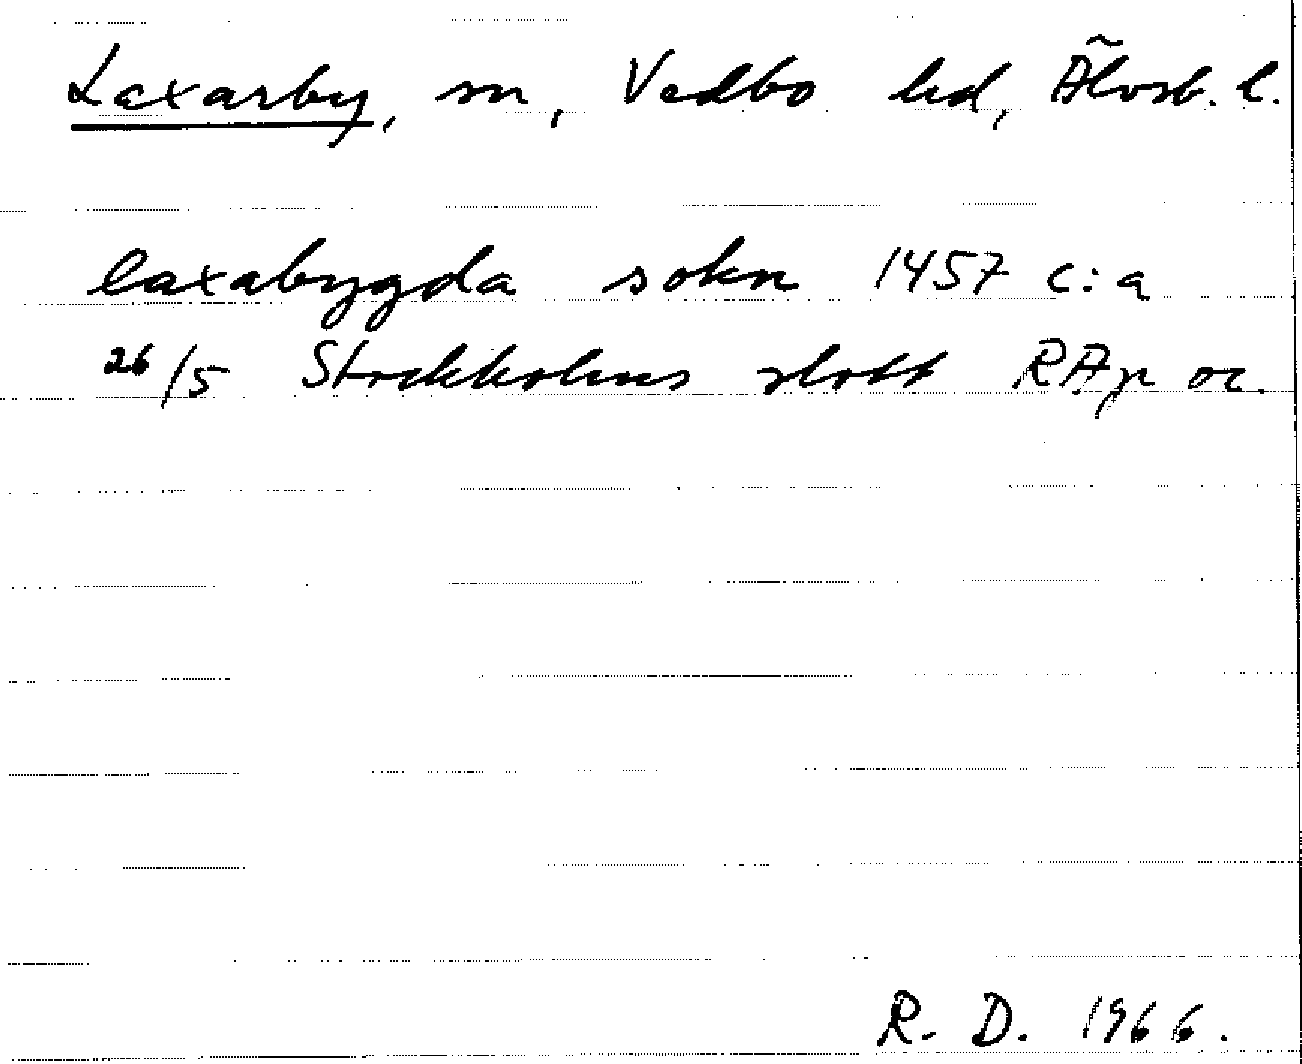 Laxarby, sn, Vedbo hd, Älvsb. l.
laxabygda sokn 1457 c:a
26/5 Stockholms slott RAp or.
R. D. 1966.